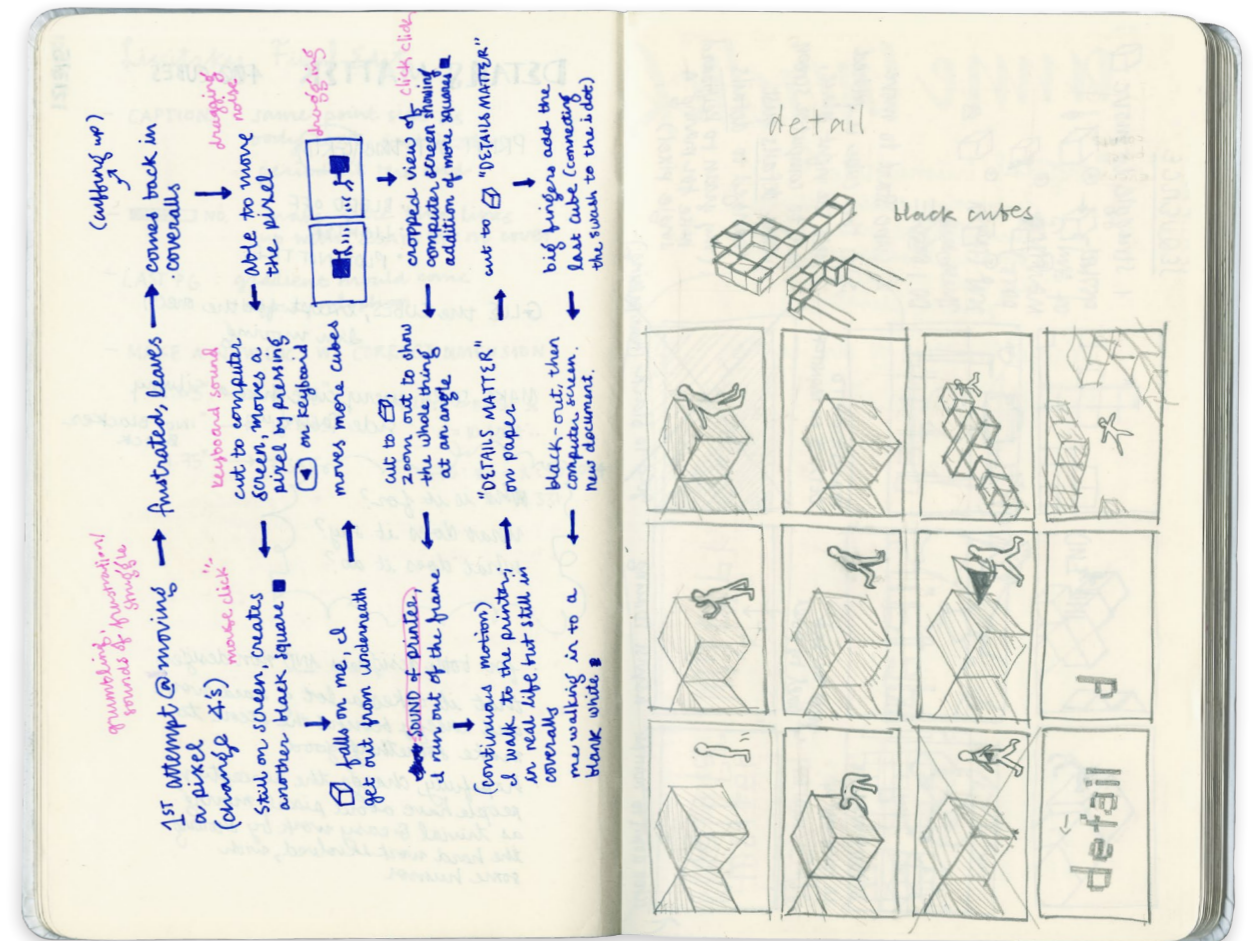 grumbling,
sounds of frustration/
struggle
1ST attempt @ moving
a pixel
(change 4.s)
→ frustrated, leaves
→ comes back in
coveralls
(cuffing up)
dragging
noise
Able to move
the pixel
keyboard sound
cut to computer
screen, moves a
pixel by pressing
◄ on keyboard
"mouse click"
still on screen creates
another black square ■
falls on me, I
get out from underneath
→ moves more cubes
dragging
click click
cropped view of
computer screen showing
addition of more squares ■
cut to
zoom out to show
the whole thing
at an angle
SOUND of printer,
I run out of the frame
(continuous motion)
I walk to the printer,
in real life, but still in
coveralls
→ "DETAILS MATTER"
on paper
→ cut to "DETAILS MATTER"
big fingers add the
last cube (connecting
the swash to the i dot)
black-out, then
computer screen.
New document.
me walking in to a
blank white
detail
black cubes
d
detail